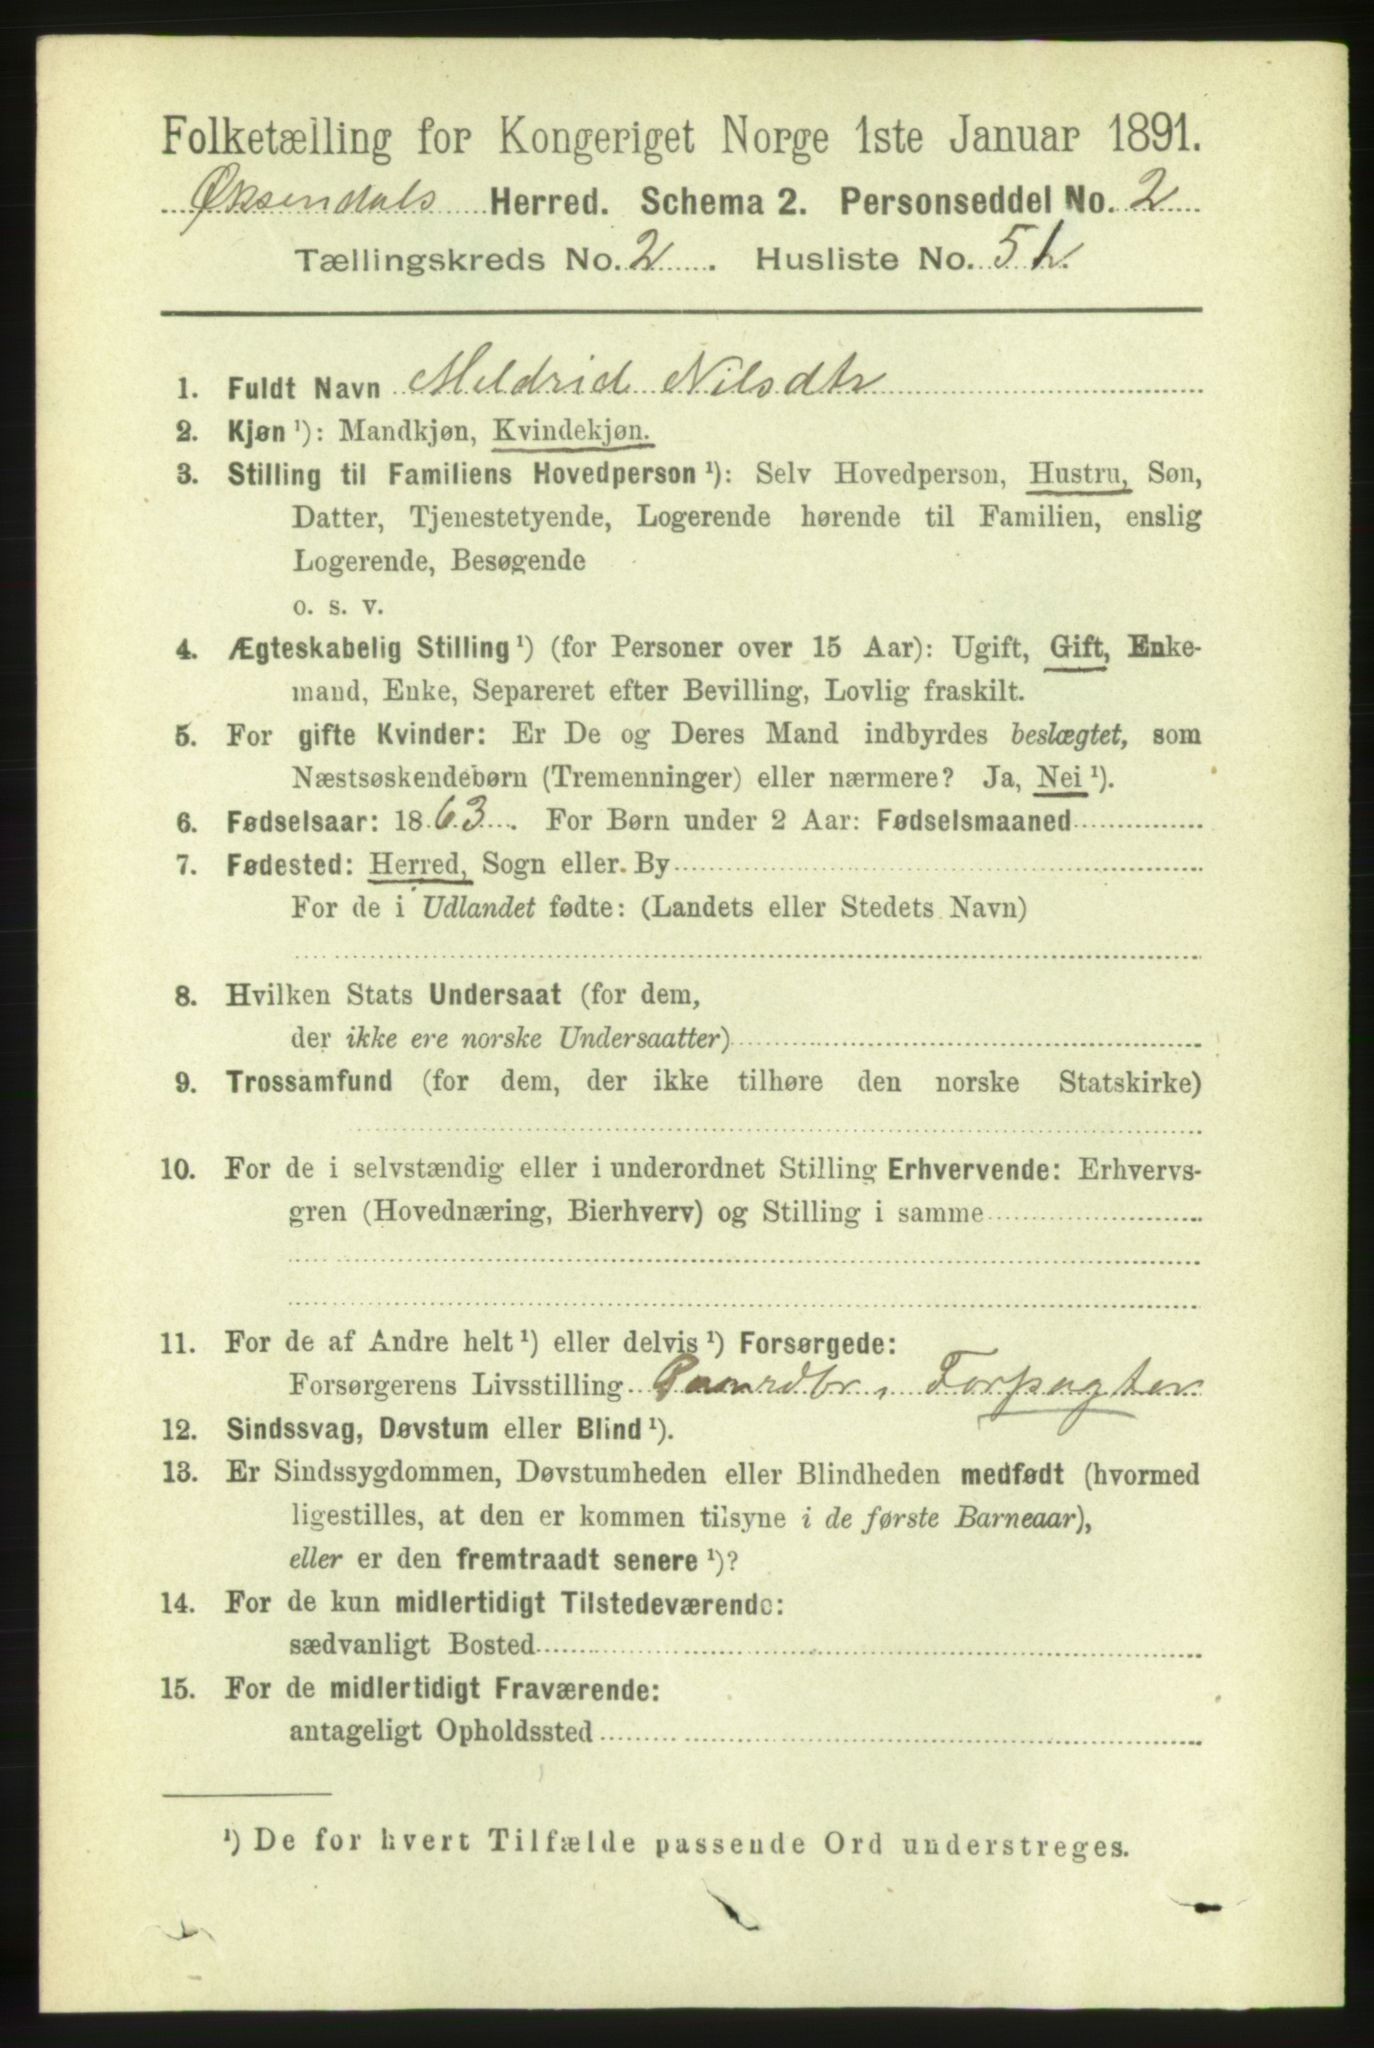 Folketælling for Kongeriget Norge 1ste Januar 1891.
Øksendals Herred. Schema 2. Personseddel No. 2
Tællingskreds No. 2. Husliste No. 5
1. Fuldt Navn Meldrid Nilsdtr
2. Kjøn ¹): Mandkjøn, Kvindekjøn.
3. Stilling til Familiens Hovedperson ¹): Selv Hovedperson, Hustru, Søn,
Datter, Tjenestetyende, Logerende hørende til Familien, enslig
Logerende, Besøgende
o. s. v.
4. Ægteskabelig Stilling ¹) (for Personer over 15 Aar): Ugift, Gift, Enke-
mand, Enke, Separeret efter Bevilling, Lovlig fraskilt.
5. For gifte Kvinder: Er De og Deres Mand indbyrdes beslægtet, som
Næstsøskendebørn (Tremenninger) eller nærmere? Ja, Nei ¹).
6. Fødselsaar: 1863. For Børn under 2 Aar: Fødselsmaaned
7. Fødested: Herred, Sogn eller By
For de i Udlandet fødte: (Landets eller Stedets Navn)
8. Hvilken Stats Undersaat (for dem,
der ikke ere norske Undersaatter)
9. Trossamfund (for dem, der ikke tilhøre den norske Statskirke)
10. For de i selvstændig eller i underordnet Stilling Erhvervende: Erhvervs-
gren (Hovednæring, Bierhverv) og Stilling i samme
11. For de af Andre helt ¹) eller delvis ¹) Forsørgede:
Forsørgerens Livsstilling Gaardbr, Forpagter
12. Sindssvag, Døvstum eller Blind ¹).
13. Er Sindssygdommen, Døvstumheden eller Blindheden medfødt (hvormed
ligestilles, at den er kommen tilsyne i de første Barneaar),
eller er den fremtraadt senere ¹)?
14. For de kun midlertidigt Tilstedeværende:
sædvanligt Bosted
15. For de midlertidigt Fraværende:
antageligt Opholdssted
¹) De for hvert Tilfælde passende Ord understreges.